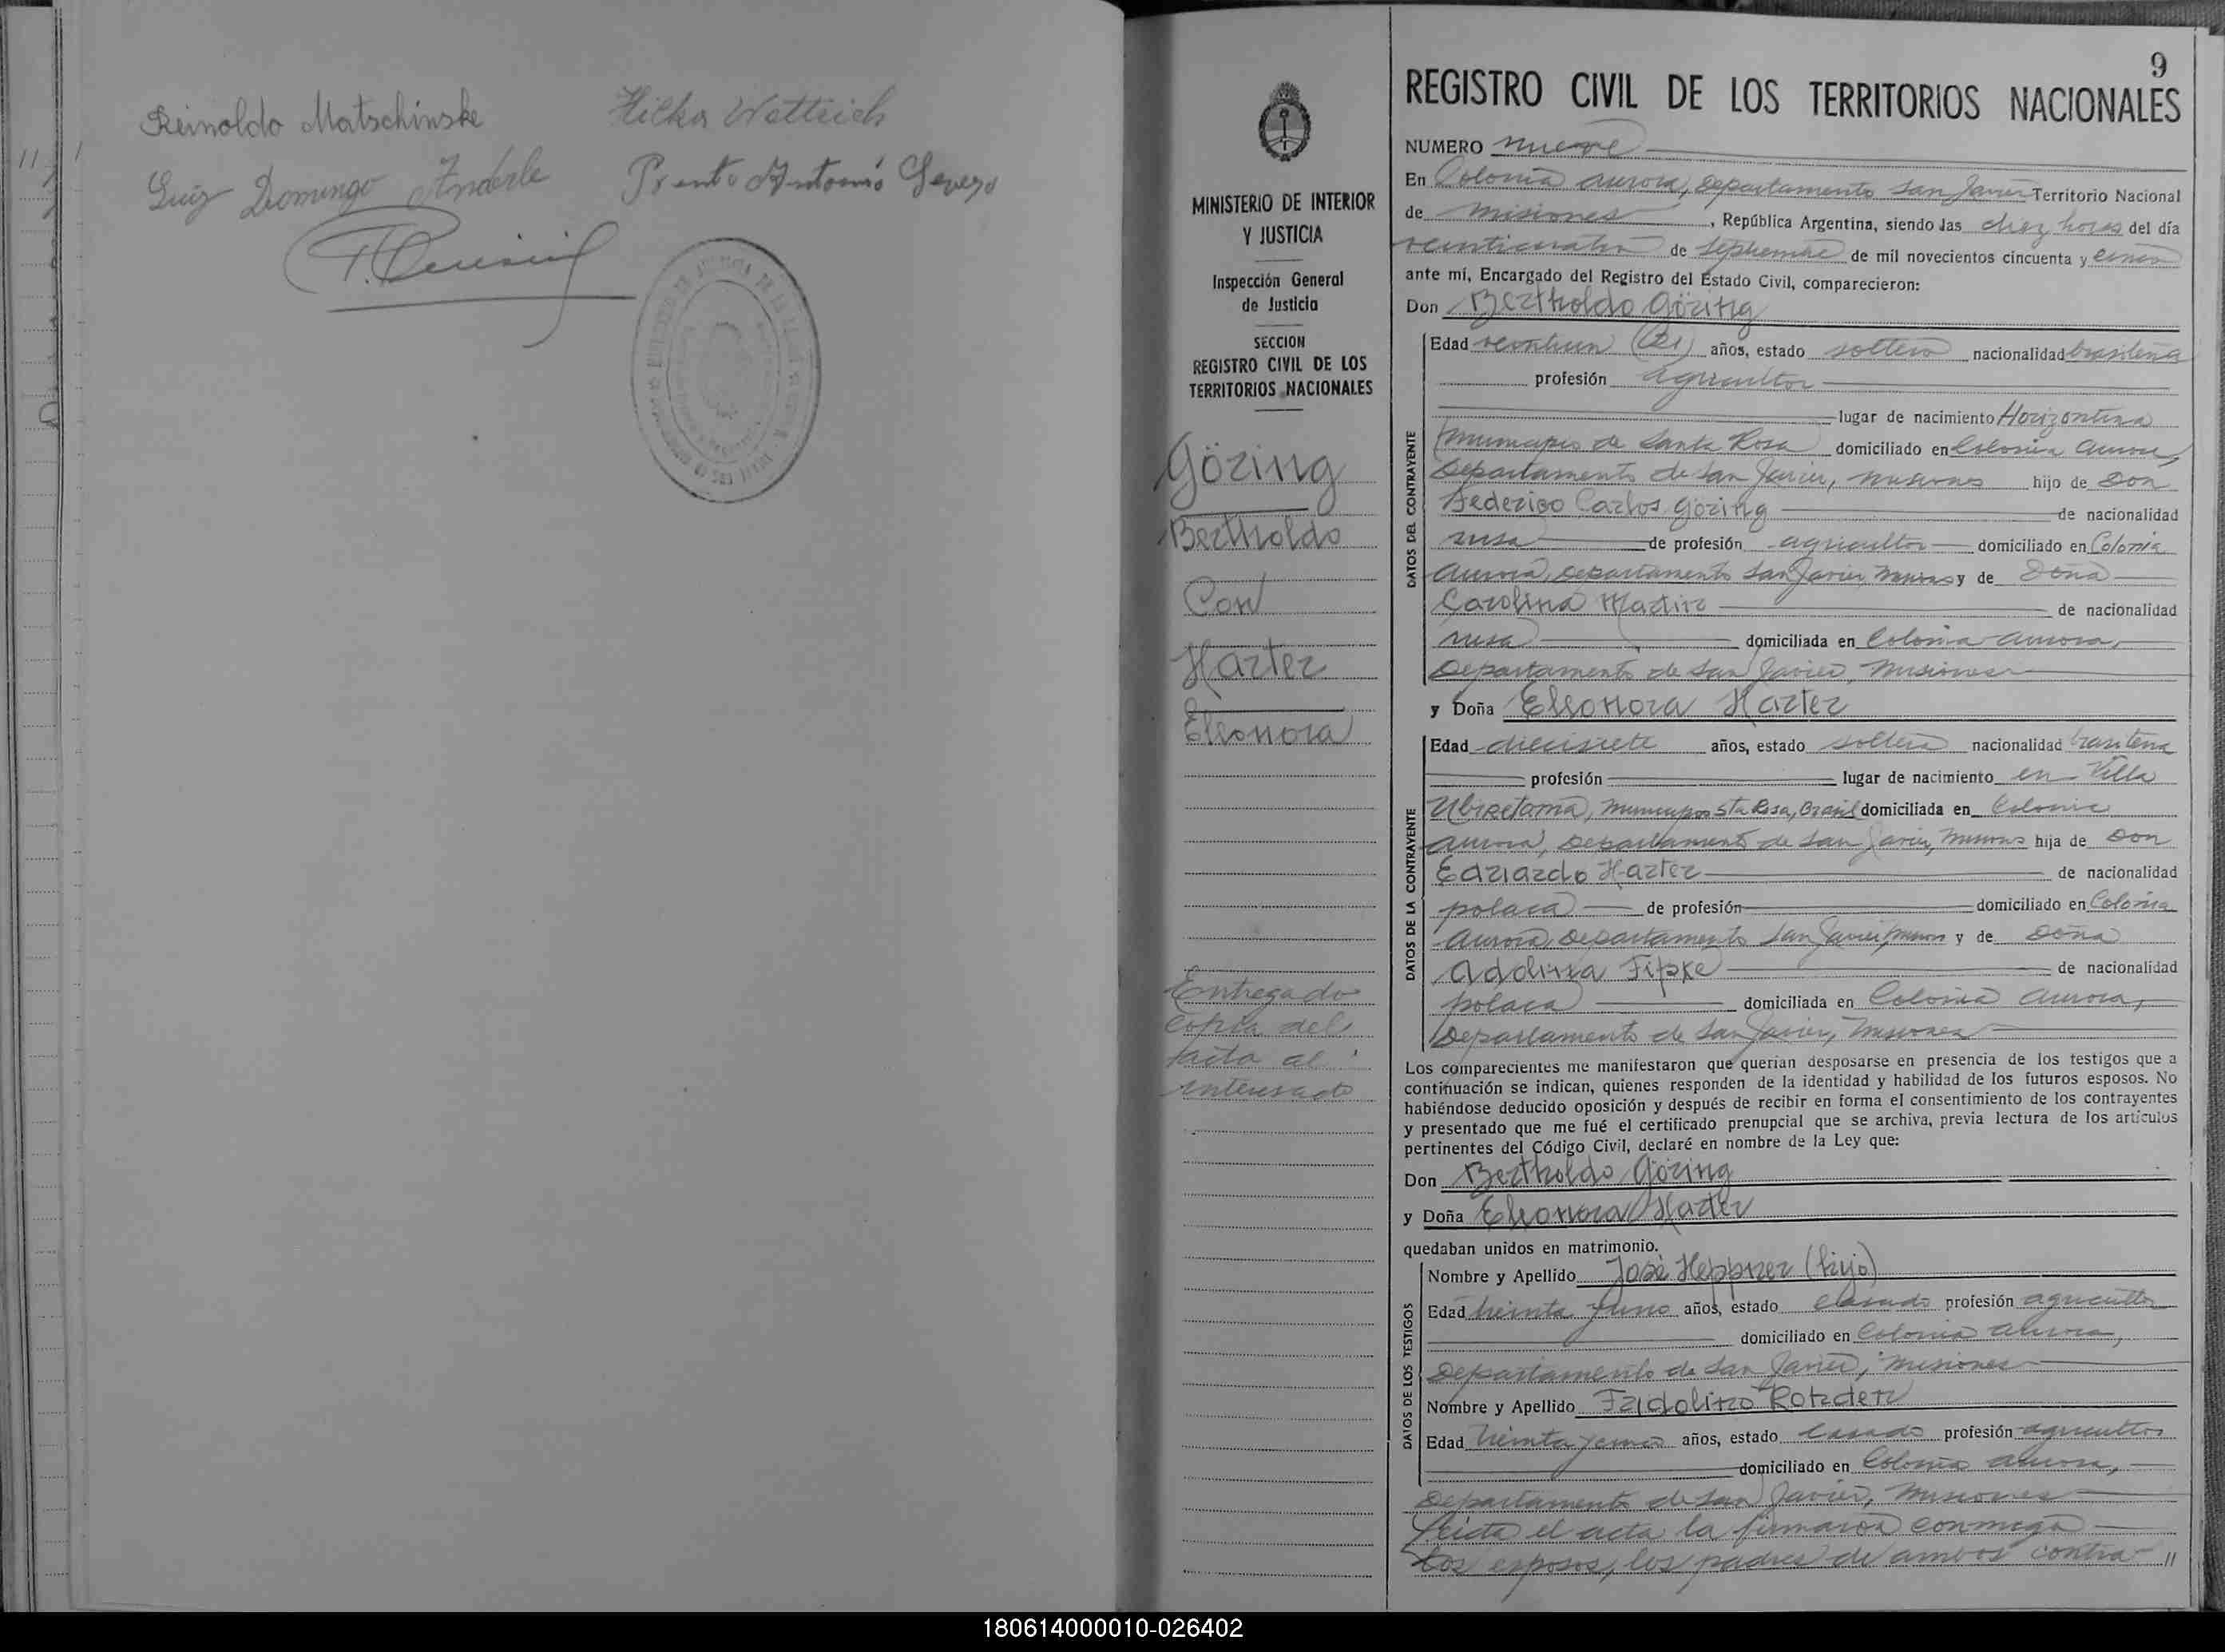 Reinoldo Matschinske
Hilka Wettrich
Luiz Domingo Anderle
Antonio
9
REGISTRO CIVIL DE LOS TERRITORIOS NACIONALES
MINISTERIO DE INTERIOR
Y JUSTICIA
Inspección General
de Justicia
SECCION
REGISTRO CIVIL DE LOS
TERRITORIOS NACIONALES
Göring
Bertholdo
Con
Harter
Eleonora
Entregado
copia del
acta al
interesado
NUMERO nueve
En Colonia Aurora, Departamento San Javier Territorio Nacional
de Misiones, República Argentina, siendo las diez horas del día
veinticuatro de Septiembre de mil novecientos cincuenta y cinco
ante mí, Encargado del Registro del Estado Civil, comparecieron:
Don Bertholdo Göring
DATOS DEL CONTRAYENTE
Edad (21) años, estado soltero nacionalidad brasileña
profesión agricultor
lugar de nacimiento Horizontina
municipio de Santa Rosa domiciliado en Colonia Aurora,
Departamento de San Javier, Misiones hijo de Don
Federico Carlos Göring de nacionalidad
rusa de profesión agricultor domiciliado en Colonia
Aurora, Departamento San Javier, Misiones y de Doña
Carolina Martin de nacionalidad
rusa domiciliada en Colonia Aurora,
Departamento de San Javier, Misiones
y Doña Eleonora Harter
DATOS DE LA CONTRAYENTE
Edad diecisiete años, estado soltera nacionalidad brasileña
profesión lugar de nacimiento en Villa
Ubiretama, Municipio Sta Rosa, Brasil domiciliada en Colonia
Aurora, Departamento de San Javier, Misiones hija de Don
Eduardo Harter de nacionalidad
polaca de profesión domiciliado en Colonia
Aurora, Departamento San Javier, Misiones y de Doña
Adolina Fipke de nacionalidad
polaca domiciliada en Colonia Aurora,
Departamento de San Javier, Misiones
Los comparecientes me manifestaron que querían desposarse en presencia de los testigos que a
continuación se indican, quienes responden de la identidad y habilidad de los futuros esposos. No
habiéndose deducido oposición y después de recibir en forma el consentimiento de los contrayentes
y presentado que me fué el certificado prenupcial que se archiva, previa lectura de los artículos
pertinentes del Código Civil, declaré en nombre de la Ley que:
Don Bertholdo Göring
y Doña Eleonora Harter
quedaban unidos en matrimonio.
DATOS DE LOS TESTIGOS
Nombre y Apellido José Heppner (hijo)
Edad treinta y uno años, estado casado profesión agricultor
domiciliado en Colonia Aurora,
Departamento de San Javier, Misiones
Nombre y Apellido
Edad treinta y cinco años, estado casado profesión agricultor
domiciliado en Colonia Aurora,
Departamento de San Javier, Misiones
Leida el acta la firmaron conmigo
los esposos, los padres de ambos contra //
180614000010-026402